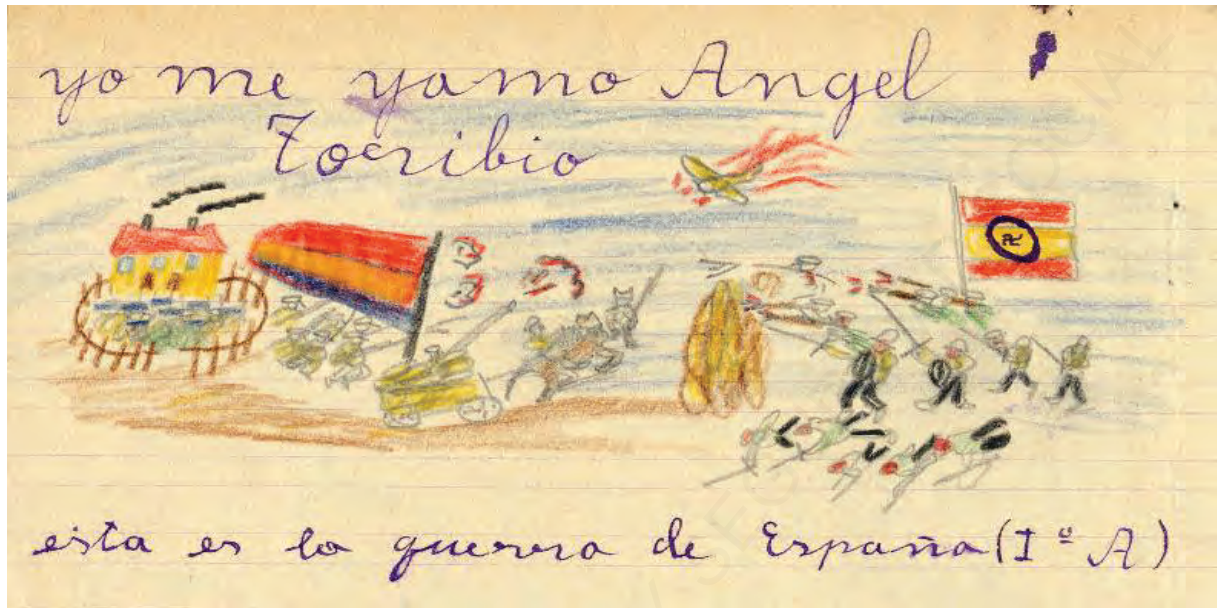 yo me yamo Angel
Toeribio
esta es la guerra de España (Iº A)